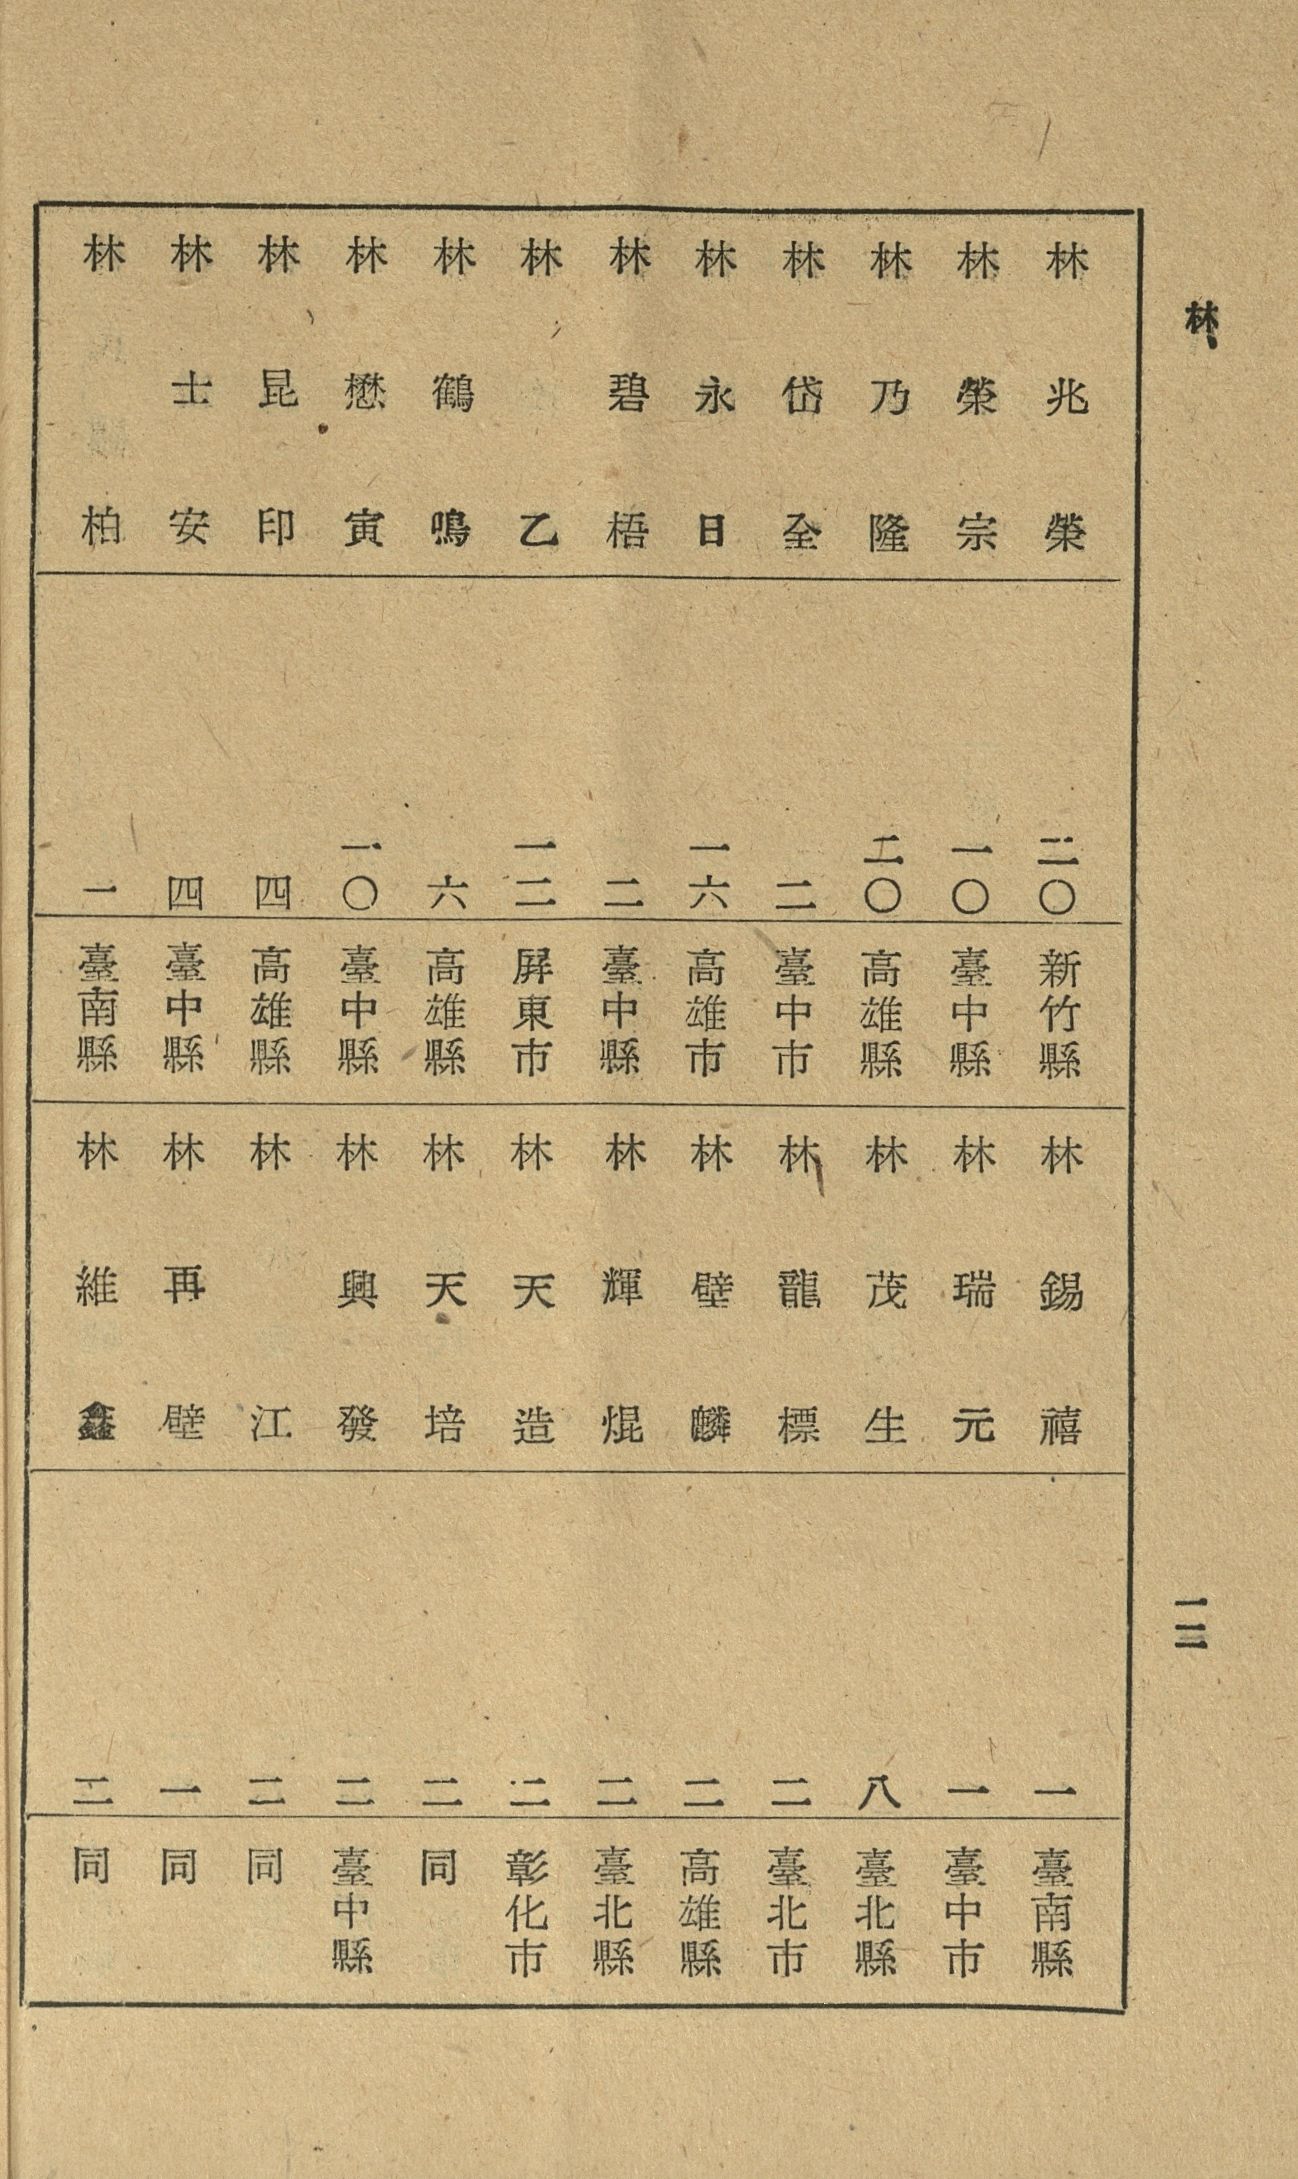 林
一二
林兆榮 二〇 新竹縣
林榮宗 一〇 臺中縣
林乃隆 二〇 高雄縣
林岱全 二 臺中市
林永日 一六 高雄市
林碧梧 二 臺中縣
林乙 一二 屏東市
林鶴鳴 六 高雄縣
林懋寅 一〇 臺中縣
林昆印 四 高雄縣
林士安 四 臺中縣
林柏 一 臺南縣
林錫禧 一 臺南縣
林瑞元 一 臺中市
林茂生 八 臺北縣
林龍標 二 臺北市
林壁麟 二 高雄縣
林輝焜 二 臺北縣
林天造 二 彰化市
林天培 二 同
林興發 二 臺中縣
林江 二 同
林再壁 一 同
林維鑫 二 同